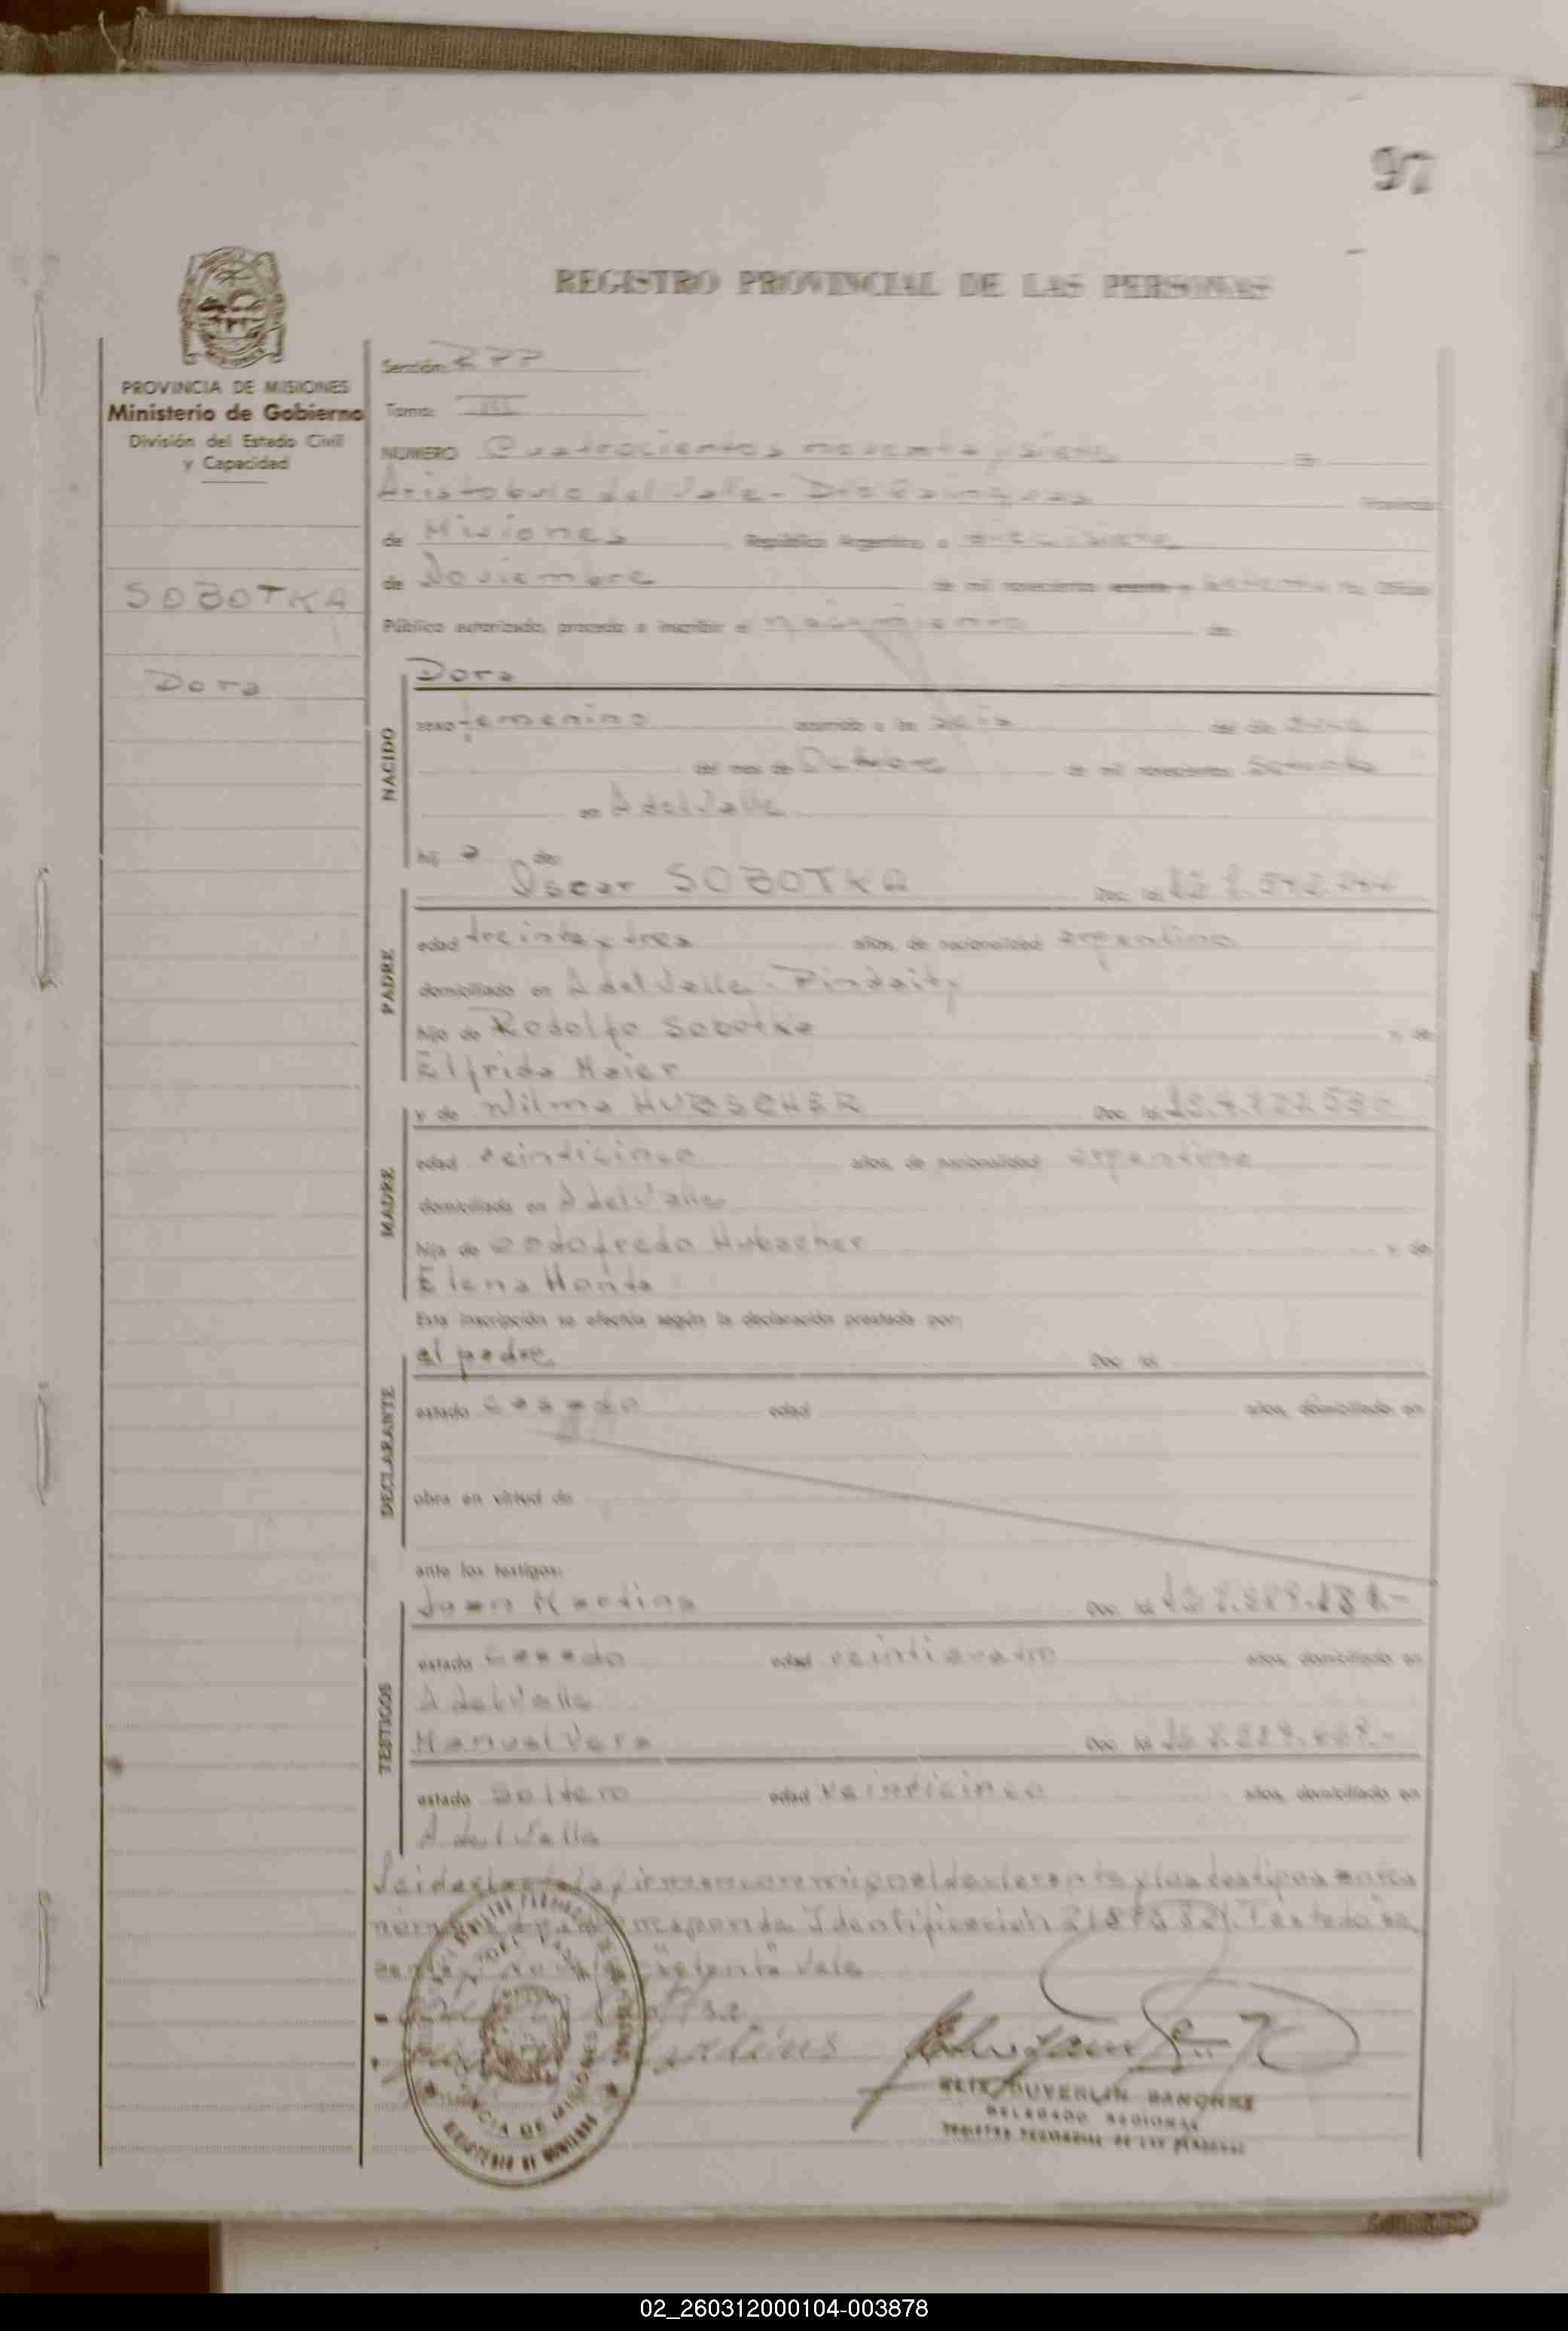 97
REGISTRO PROVINCIAL DE LAS PERSONAS
PROVINCIA DE MISIONES
Ministerio de Gobierno
División del Estado Civil
y Capacidad
SOBOTKA
Dora
Sección: 277
Tomo: III
NUMERO Cuatrocientos noventa y siete
Aristobulo del Valle - Provincia
de Misiones República Argentina a diecisiete
de Noviembre de mil novecientos setenta Yo, Oficial
Público autorizado, procedo a inscribir el nacimiento de
NACIDO
Dora
sexo femenino ocurrido a las seis del día
del mes de Octubre de mil novecientos setenta
en A del Valle
hij a de
PADRE
Oscar SOBOTKA Doc. Id.
edad treinta y tres años, de nacionalidad argentino
domiciliado en A del Valle - Pindaity
hijo de Rodolfo Sobotka y de
Elfrida Maier
MADRE
y de Wilma HUBSCHER Doc. Id.
edad veinticinco años, de nacionalidad argentina
domiciliada en A del Valle
hija de Godofredo Hubscher y de
Elena
Esta inscripción se efectúa según la declaración prestada por:
DECLARANTE
el padre Doc. Id.
estado casado edad años, domiciliado en
obra en virtud de
ante los testigos:
TESTIGOS
Juan Martins Doc. Id.
estado casado edad veinticuatro años, domiciliado en
A del Valle
Manuel Vera Doc. Id.
estado soltero edad veinticinco años, domiciliado en
A del Valle
Leida el acta la firman conmigo el declarante y los testigos
Identificación Testado
"setenta" Vale
PROVINCIA DE MISIONES
MINISTERIO DE GOBIERNO
DELEGADO REGIONAL
REGISTRO PROVINCIAL DE LAS PERSONAS
02_260312000104-003878